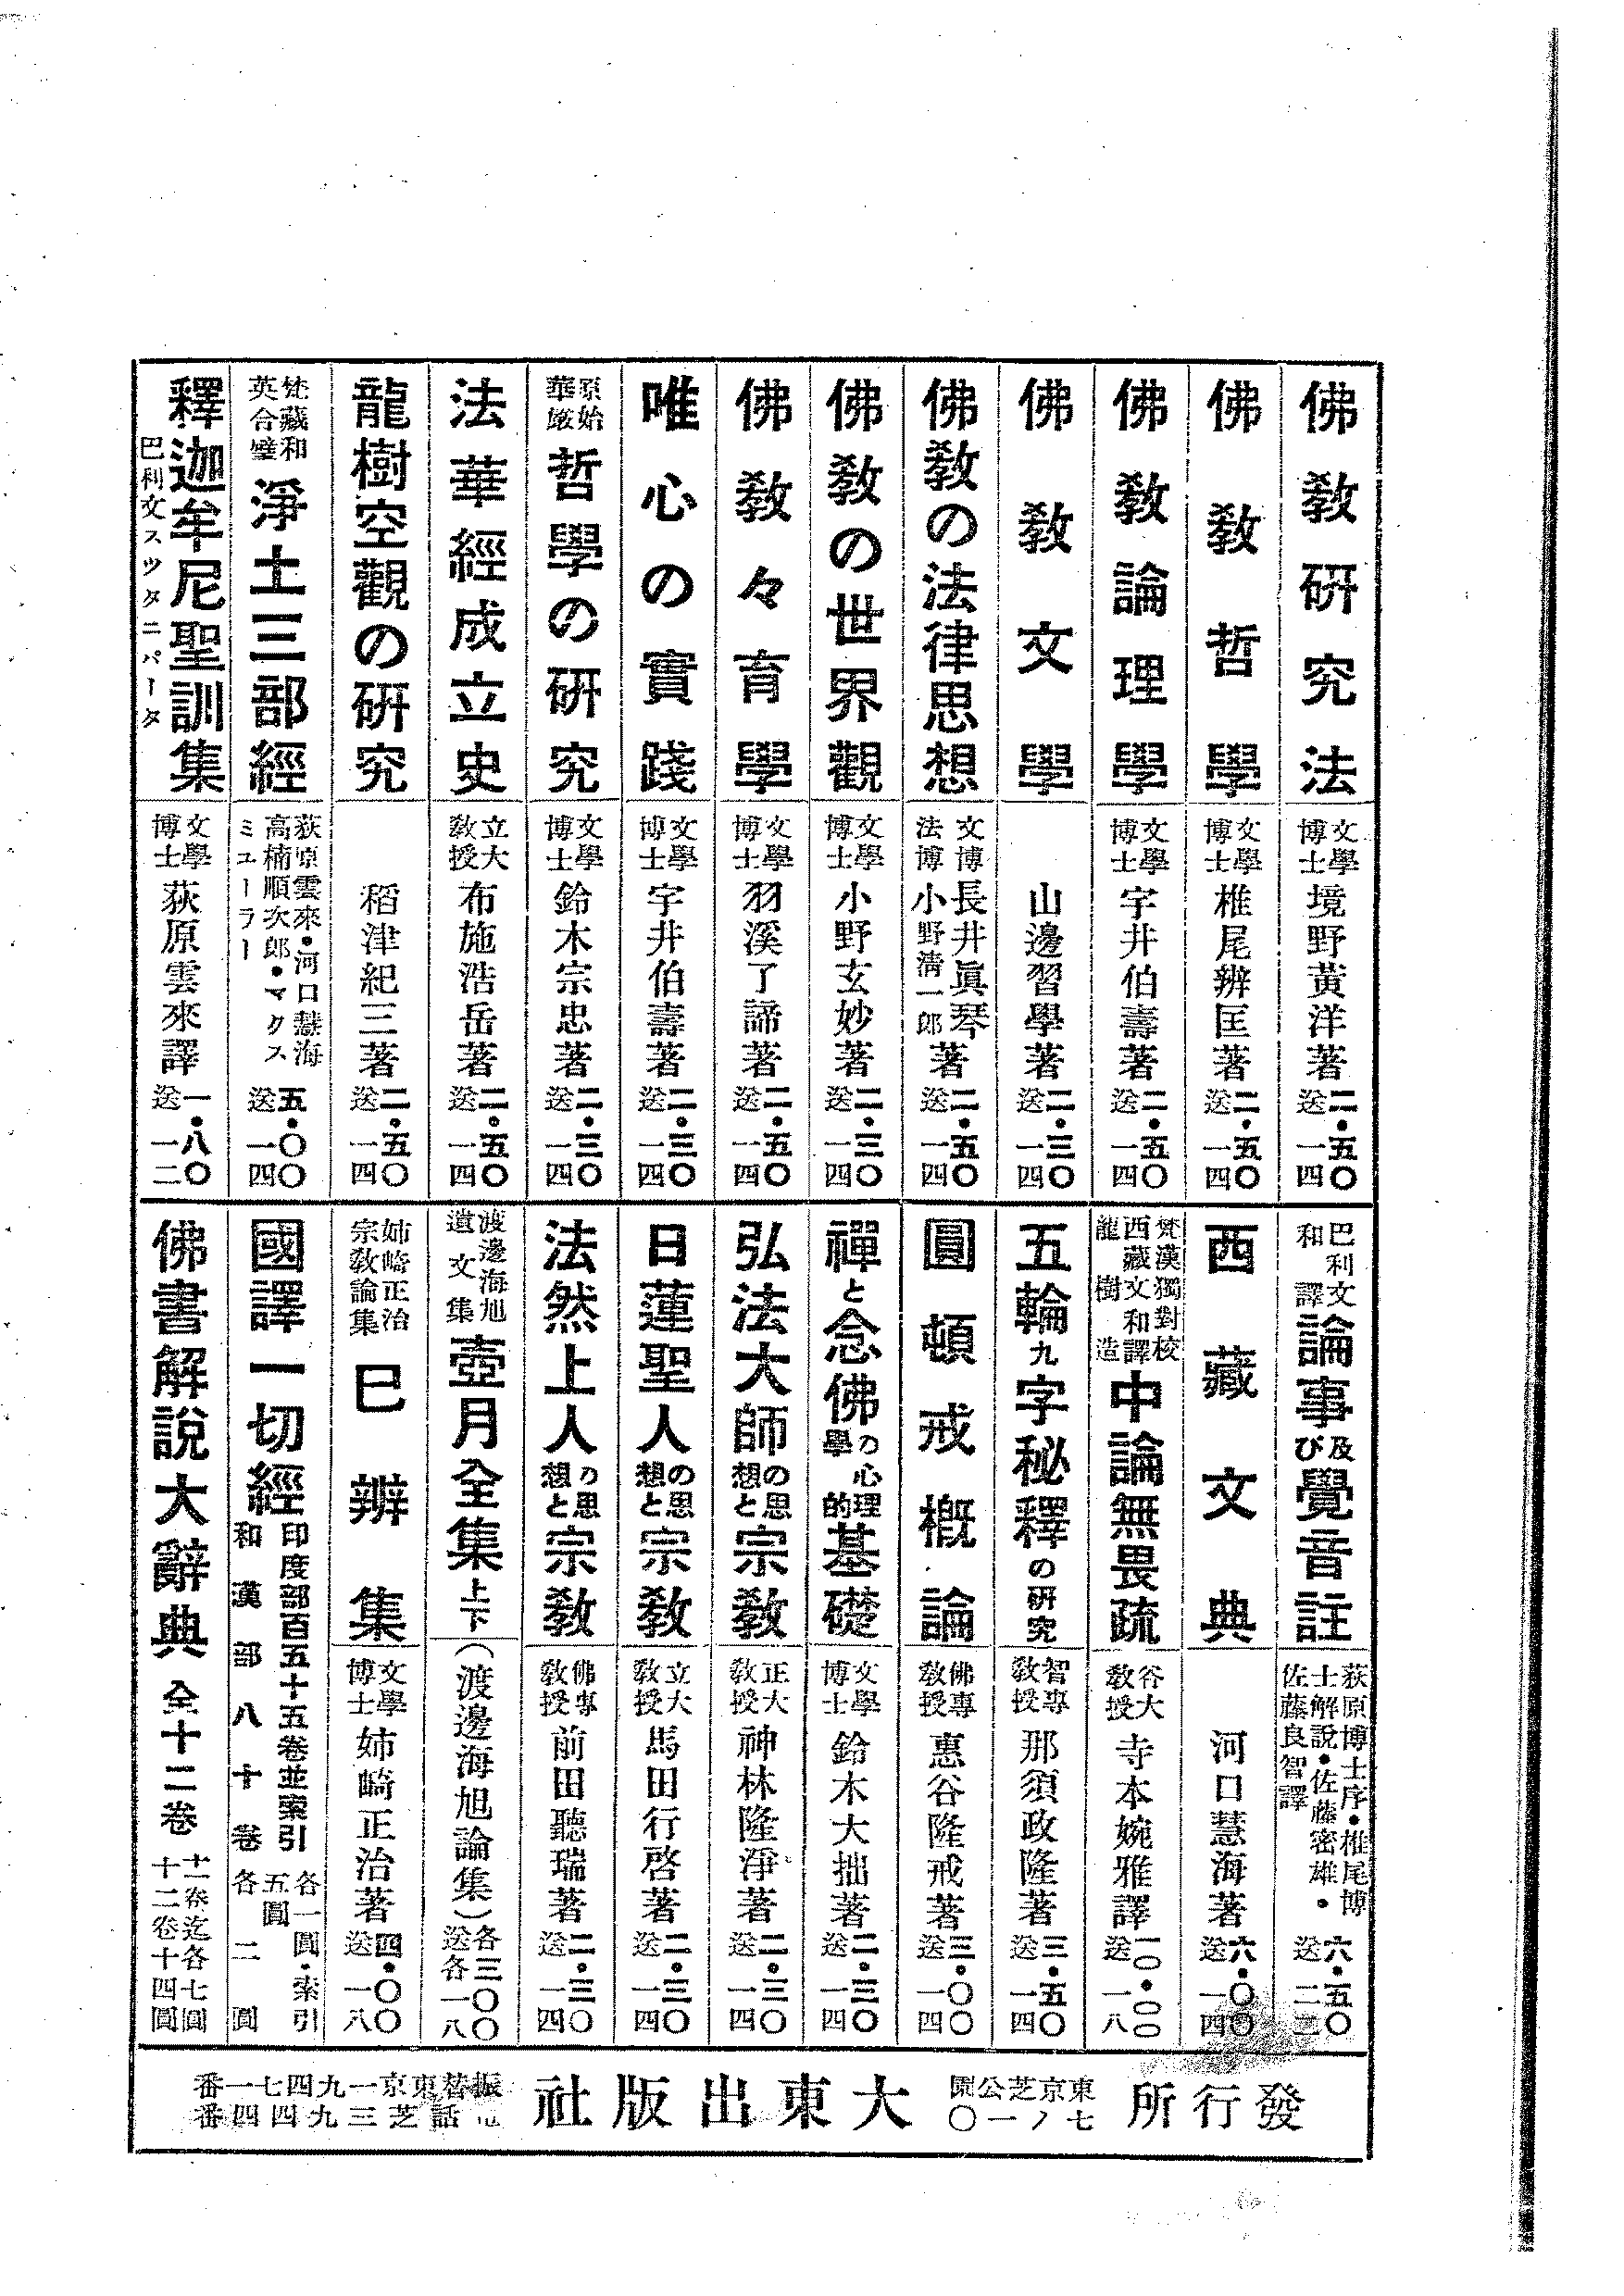 佛教研究法 文學博士 境野黃洋著 二・五〇 送一四
佛教哲學 文學博士 椎尾辨匡著 二・五〇 送一四
佛教論理學 文學博士 宇井伯壽著 二・五〇 送一四
佛教文學 山邊習學著 二・三〇 送一四
佛教の法律思想 文博 長井眞琴 法博 小野淸一郎 著 二・五〇 送一四
佛教の世界觀 文學博士 小野玄妙著 二・三〇 送一四
佛教々育學 文學博士 羽溪了諦著 二・五〇 送一四
唯心の實踐 文學博士 宇井伯壽著 二・三〇 送一四
原始華嚴 哲學の硏究 文學博士 鈴木宗忠著 二・三〇 送一四
法華經成立史 立大教授 布施浩岳著 二・五〇 送一四
龍樹空觀の硏究 稻津紀三著 二・五〇 送一四
梵藏和英合璧 淨土三部經 荻原雲來・河口慧海 高楠順次郎・マクス ミユーラー 五・〇〇 送一四
釋迦牟尼聖訓集 巴利文スツタニパータ 文學博士 荻原雲來譯 一・八〇 送一二
巴利文和譯 論事及び覺音註 荻原博士序・椎尾博士解說・佐藤密雄・佐藤良智譯 六・五〇 送二二
西藏文典 河口慧海著 六・〇〇 送一四
梵漢獨對校 西藏文和譯 龍樹造 中論無畏疏 谷大教授 寺本婉雅譯 一〇・〇〇 送一八
五輪九字秘釋の硏究 智專教授 那須政隆著 三・五〇 送一四
圓頓戒槪論 佛專教授 惠谷隆戒著 三・〇〇 送一四
禪と念佛の心理學的基礎 文學博士 鈴木大拙著 二・三〇 送一四
弘法大師の思想と宗教 正大教授 神林隆淨著 二・三〇 送一四
日蓮聖人の思想と宗教 立大教授 馬田行啓著 二・三〇 送一四
法然上人の思想と宗教 佛專教授 前田聽瑞著 二・三〇 送一四
渡邊海旭遺文集 壺月全集 上下 （渡邊海旭論集） 各三〇〇 送各一八
姉崎正治宗教論集 巳辨集 文學博士 姉崎正治著 四・〇〇 送一八
國譯一切經 印度部百五十五卷並索引 各一圓・索引五圓 和漢部八十卷 各二圓
佛書解說大辭典 全十二卷 十一卷迄各七圓 十二卷十四圓
發行所 東京芝公園七ノ一〇 大東出版社 振替東京一九四七一番 電話芝三九四四番